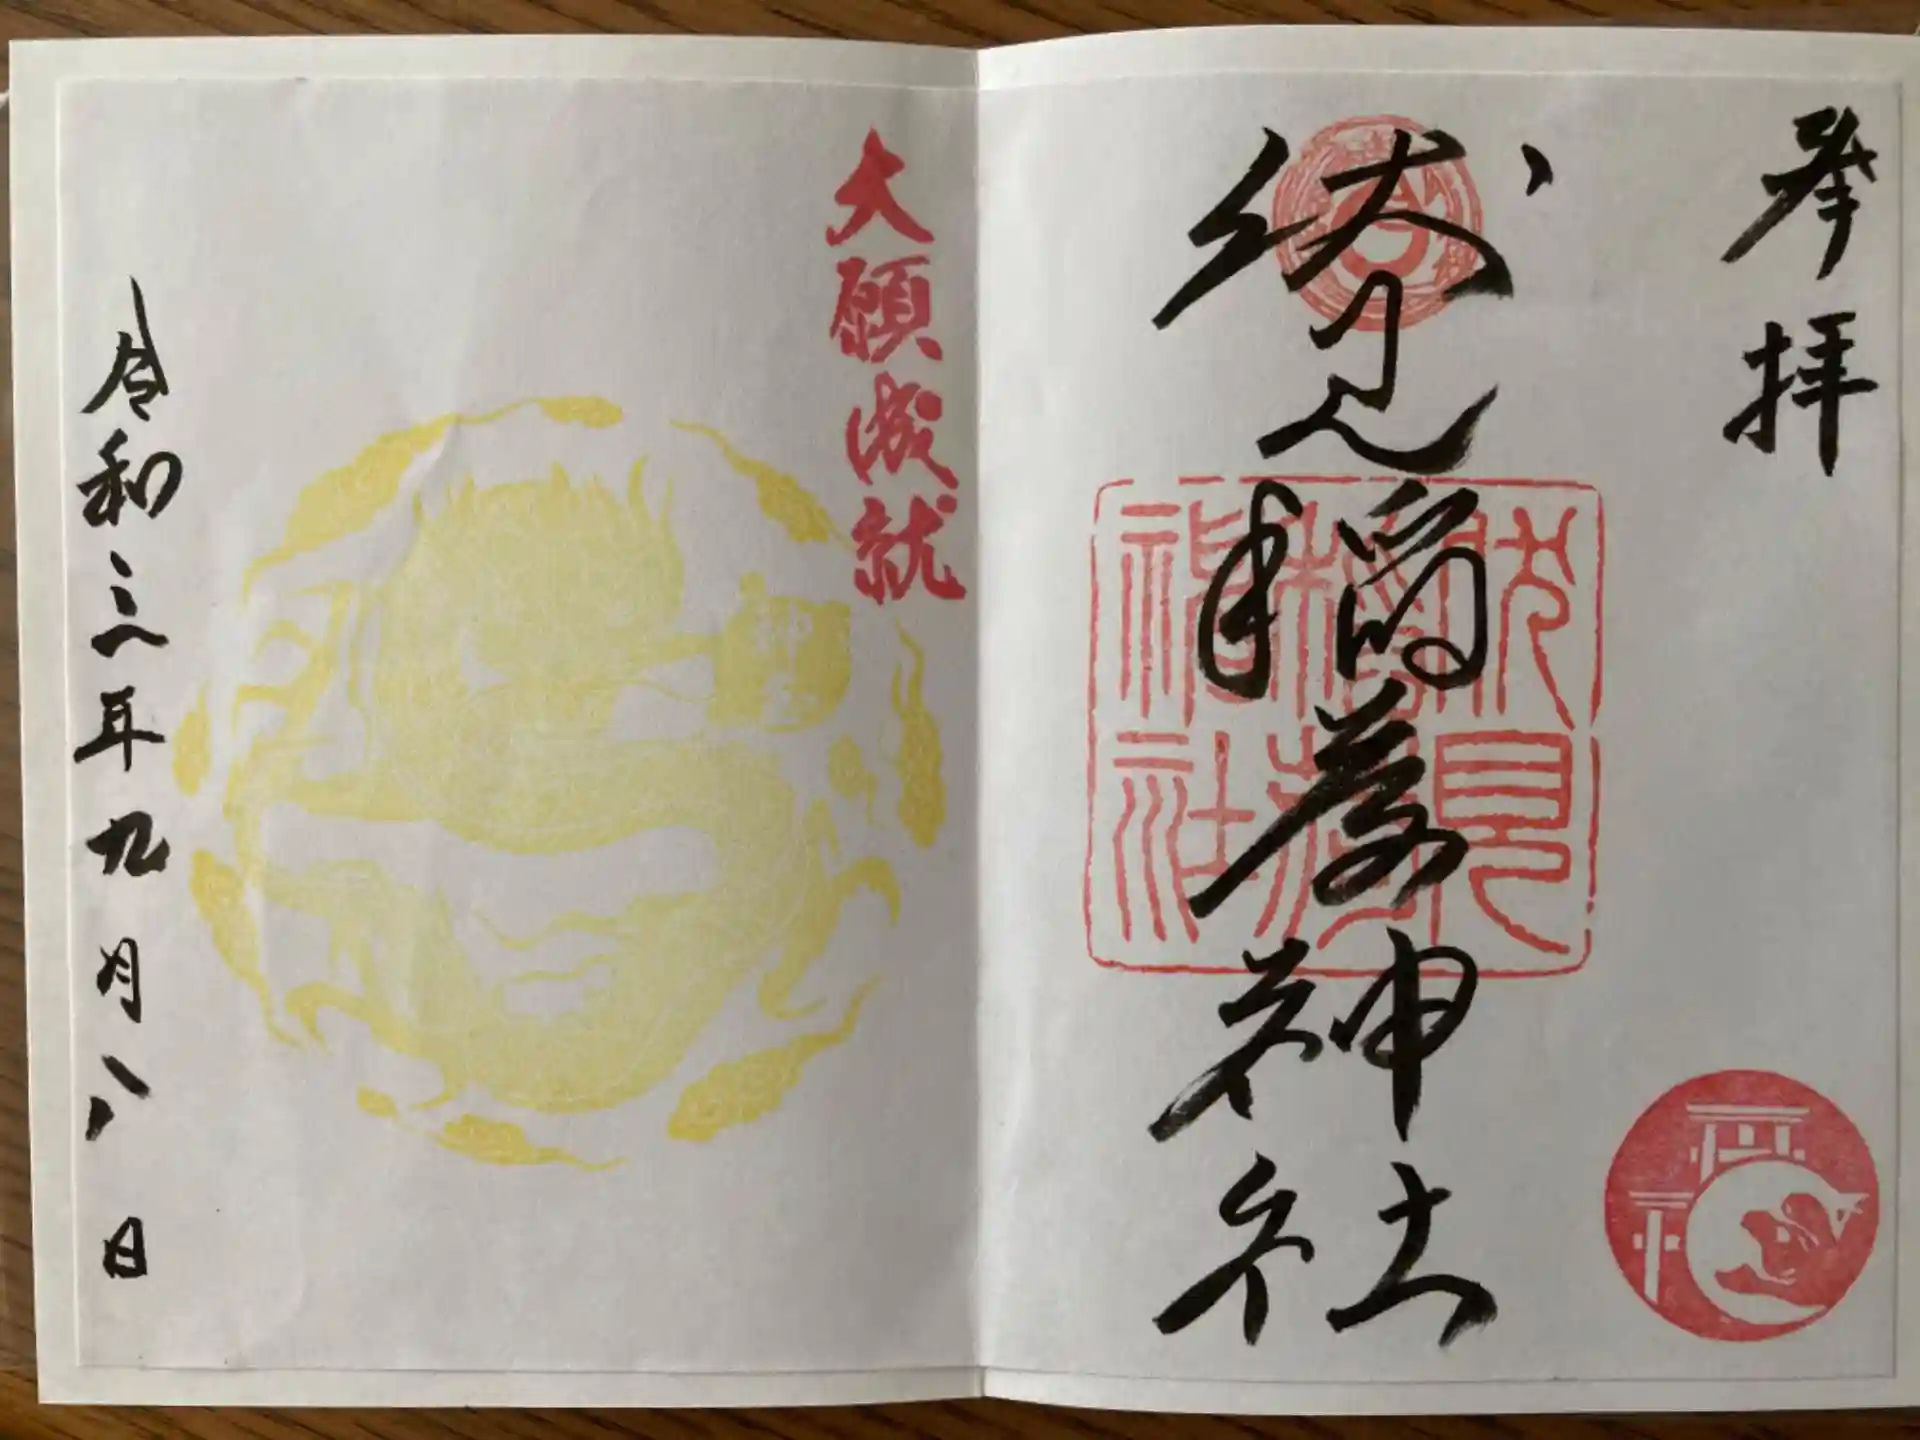 奉拝
伏見稲荷神社
伏見
稲荷
神社
大願成就
令和三年九月八日